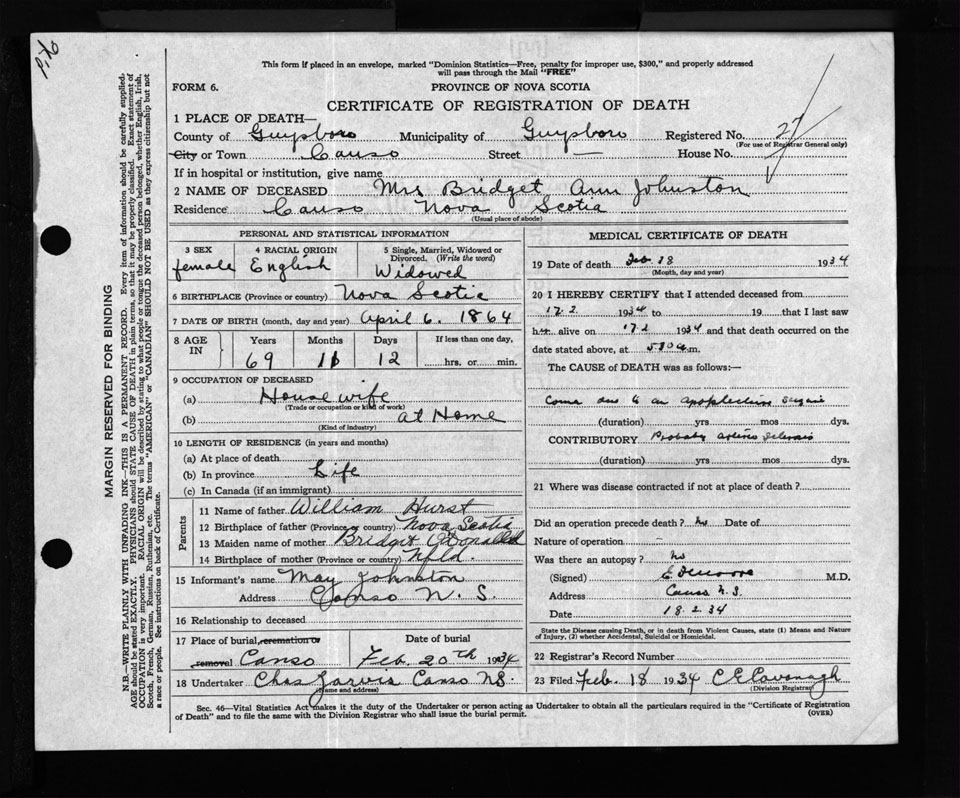 This form if placed in an envelope, marked "Dominion Statistics—Free, penalty for improper use, $300," and properly addressed
will pass through the Mail "FREE"
FORM 6.
PROVINCE OF NOVA SCOTIA
CERTIFICATE OF REGISTRATION OF DEATH
1 PLACE OF DEATH—
County of Guysboro Municipality of Guysboro Registered No. 27
(For use of Registrar General only)
City or Town Canso Street — House No.
If in hospital or institution, give name
2 NAME OF DECEASED Mrs Bridget Ann Johnston
Residence Canso Nova Scotia
(Usual place of abode)
PERSONAL AND STATISTICAL INFORMATION
3 SEX 4 RACIAL ORIGIN 5 Single, Married, Widowed or
Divorced. (Write the word)
female English Widowed
6 BIRTHPLACE (Province or country) Nova Scotia
7 DATE OF BIRTH (month, day and year) April 6. 1864
8 AGE IN Years Months Days If less than one day,
69 11 12 hrs. or min.
9 OCCUPATION OF DECEASED
(a) Housewife
(Trade or occupation or kind of work)
(b) at Home
(Kind of industry)
10 LENGTH OF RESIDENCE (in years and months)
(a) At place of death
(b) In province Life
(c) In Canada (if an immigrant)
Parents
11 Name of father William Hurst
12 Birthplace of father (Province or country) Nova Scotia
13 Maiden name of mother Bridget
14 Birthplace of mother (Province or country) Nfld
15 Informant's name May Johnston
Address Canso N. S.
16 Relationship to deceased
17 Place of burial, cremation or Date of burial
removal Canso Feb. 20th 1934
18 Undertaker Chas Jarvis Canso NS.
(Name and address)
MEDICAL CERTIFICATE OF DEATH
19 Date of death Feb 18 1934
(Month, day and year)
20 I HEREBY CERTIFY that I attended deceased from
17.2 1934 to 19 that I last saw
h alive on 17.2 1934 and that death occurred on
the date stated above, at m.
The CAUSE of DEATH was as follows:—
Coma due to an apoplectic
(duration) yrs mos dys.
CONTRIBUTORY Probably
(duration) yrs mos dys.
21 Where was disease contracted if not at place of death?
Did an operation precede death? no Date of
Nature of operation –
Was there an autopsy? no
(Signed) M.D.
Address Canso N.S.
Date 18.2.34
State the Disease causing Death, or in death from Violent Causes, state (1) Means and Nature
of Injury, (2) whether Accidental, Suicidal or Homicidal.
22 Registrar's Record Number
23 Filed Feb. 18 1934 C E Cavanagh
(Division Registrar)
Sec. 46—Vital Statistics Act makes it the duty of the Undertaker or person acting as Undertaker to obtain all the particulars required in the "Certificate of Registration
of Death" and to file the same with the Division Registrar who shall issue the burial permit.
(OVER)
MARGIN RESERVED FOR BINDING
N.B.—WRITE PLAINLY WITH UNFADING INK—THIS IS A PERMANENT RECORD. Every item of information should be carefully supplied.
AGE should be stated EXACTLY. PHYSICIANS should STATE CAUSE OF DEATH in plain terms, so that it may be properly classified. Exact statement of
OCCUPATION is very important. RACIAL ORIGIN will be described by stating to what people or tongue the deceased person belonged, whether English, Irish,
Scotch, French, German, Russian, Ruthenian, etc. The terms "AMERICAN" or "CANADIAN" SHOULD NOT BE USED as they express citizenship but not
a race or people. See instructions on back of Certificate.